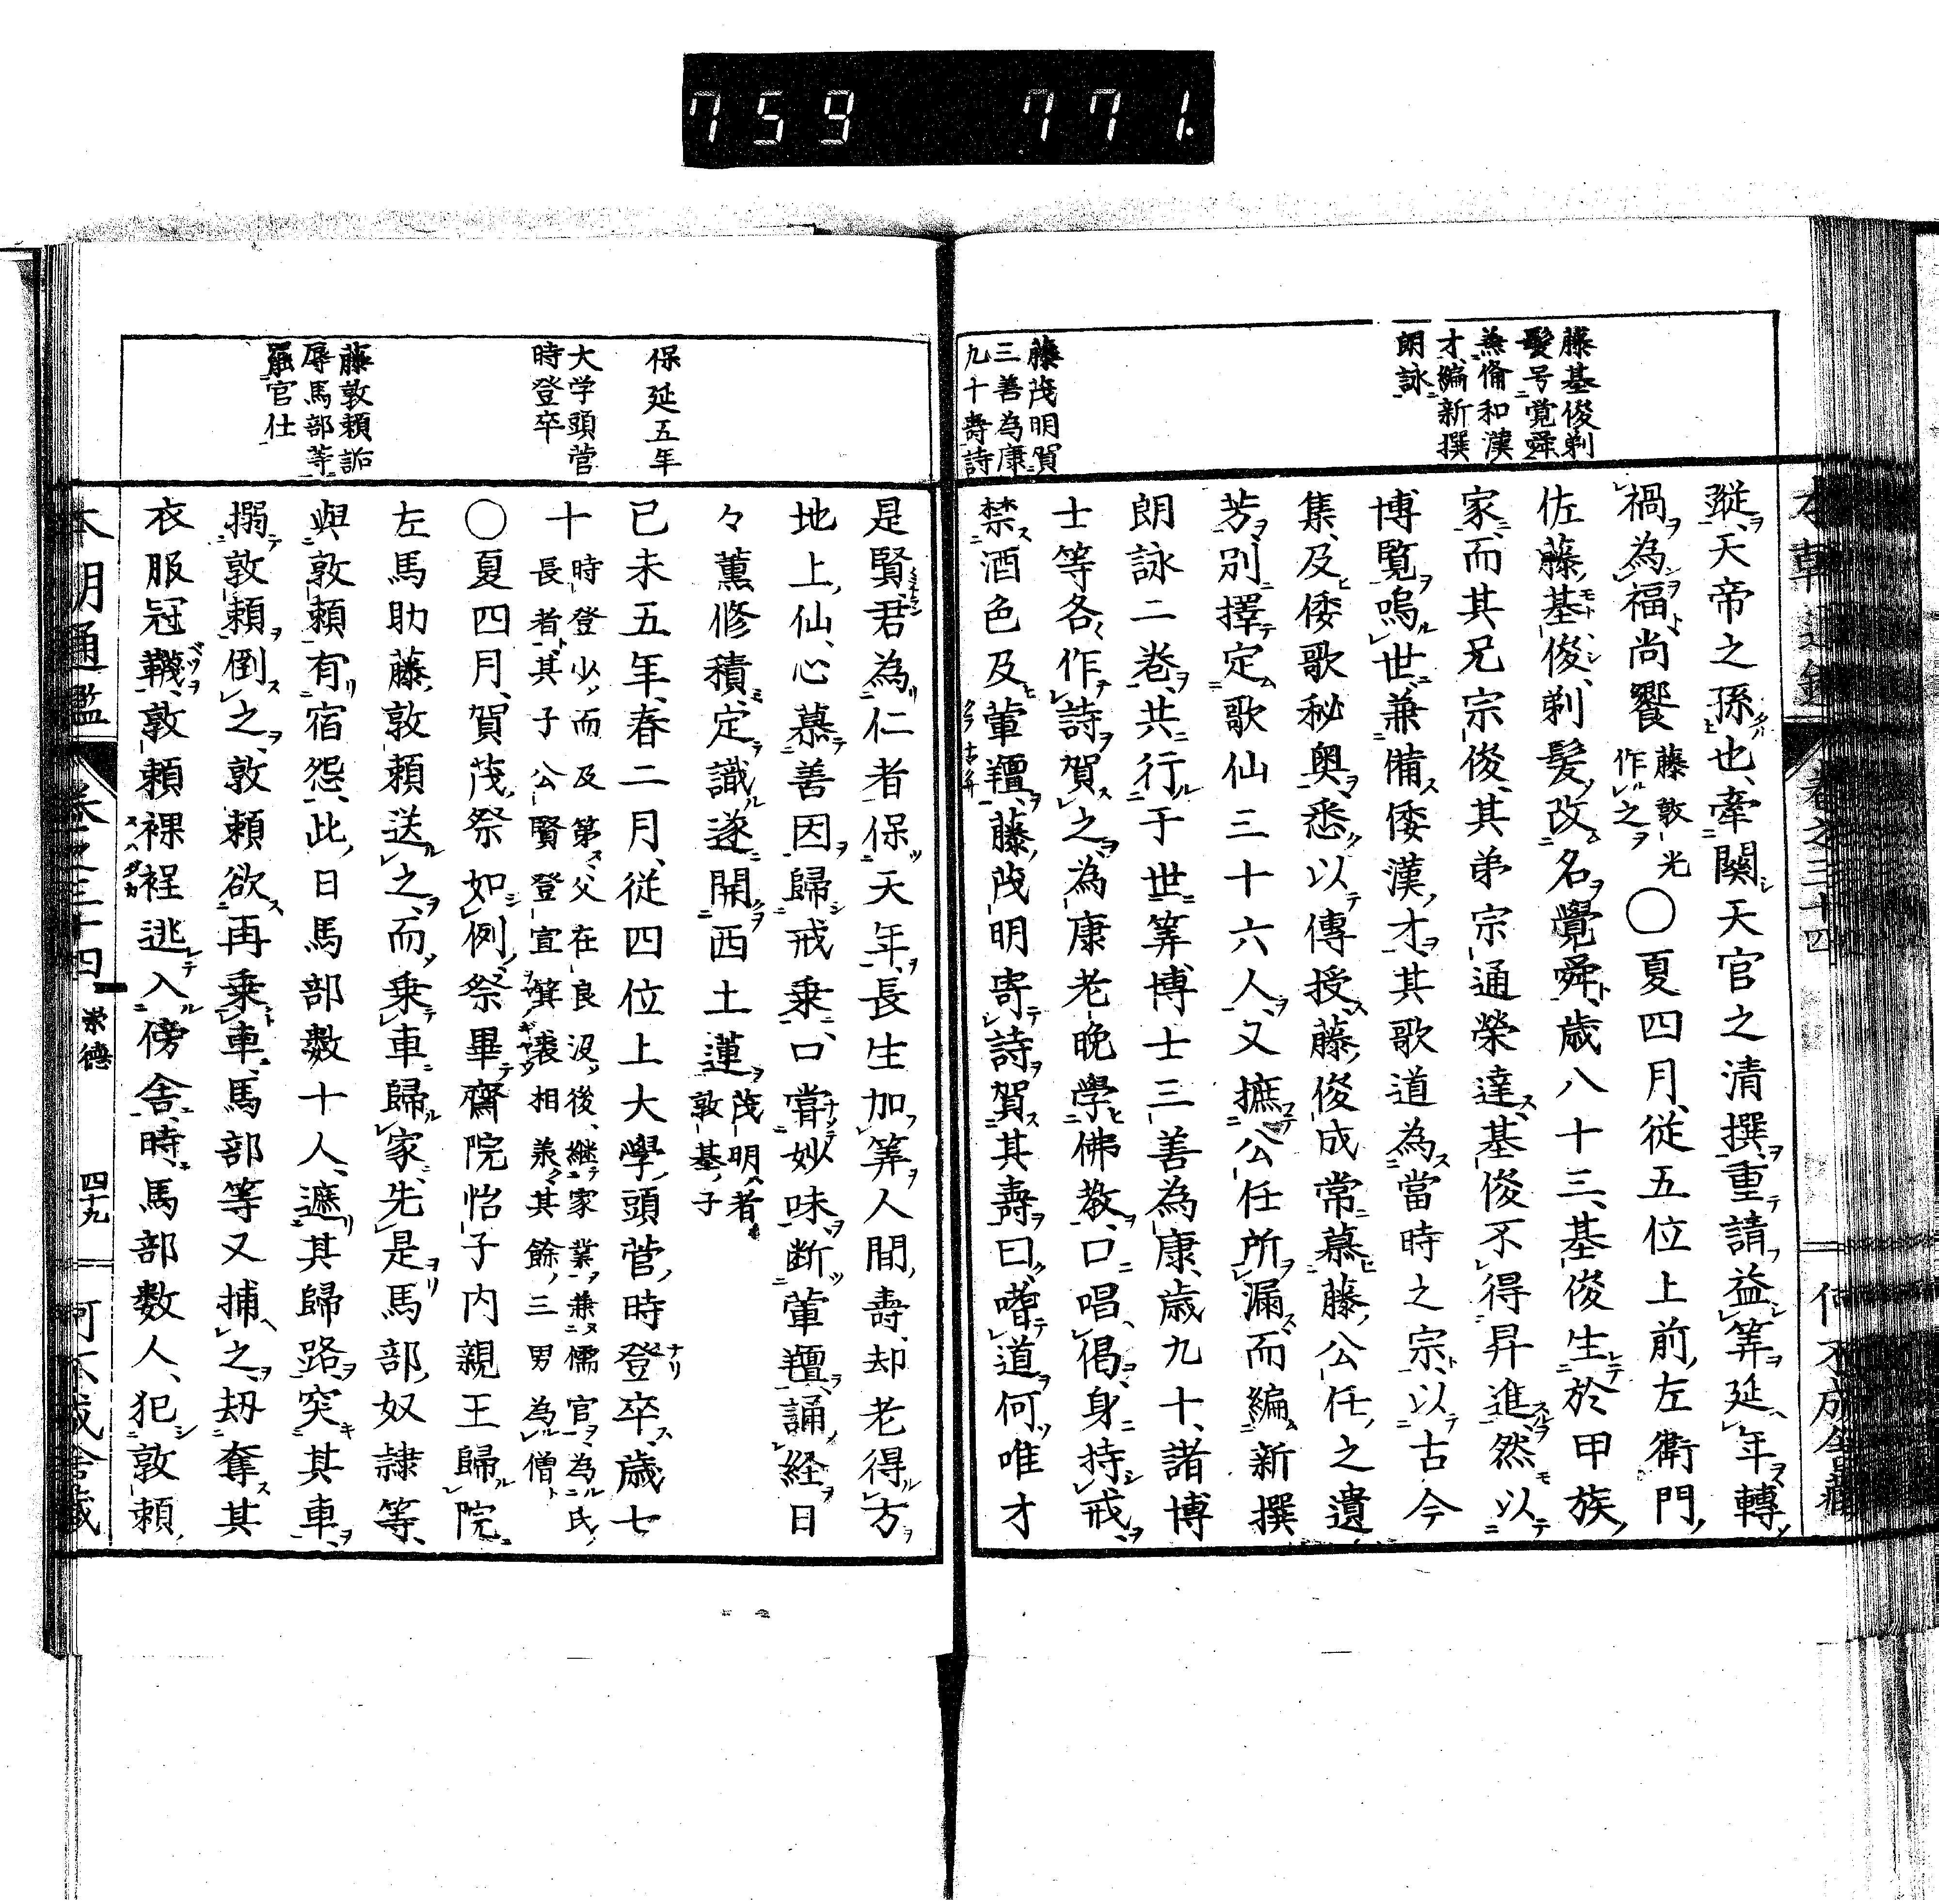 759 771.
本朝通鑑 卷之三十四 何不成舎藏
藤基俊剃
髮号覚舜
兼備和漢
才編新撰
朗詠
藤茂明賀
三善為康
九十壽詩
蹤、天帝之孫也、牽關天官之清撰、重請益筭延年轉
禍為福尚饗 藤敦光作之 〇夏四月、從五位上前左衛門
佐藤基俊、剃髮、改名覺舜、歳八十三、基俊生於甲族
家、而其兄宗俊、其弟宗通榮達、基俊不得昇進然以
博覧鳴世、兼備倭漢才、其歌道為當時之宗、以古今
集、及倭歌秘奥、悉以傳授藤俊成常慕藤公任之遺
芳、別擇定歌仙三十六人、又摭公任所漏而編新撰
朗詠二卷、共行于世、筭博士三善為康、歳九十、諸博
士等各作詩賀之、為康老晩學佛教、口唱偈、身持戒、
禁酒色及葷羶、藤茂明寄詩賀其壽曰、嗜道何唯才
保延五年
大学頭菅
時登卒
藤敦頼詬
辱馬部等
罷官仕
是賢、君為仁者保天年、長生加筭人間壽、却老得方
地上仙、心慕善因歸戒乗、口嘗妙味断葷羶、誦経日
々薫修積、定識遂開西土蓮 茂明者敦基子
已未五年、春二月、従四位上大學頭菅時登卒、歳七
十 時登少而及第、父在良沒後、継家業、兼儒官、為氏
長者、其子公賢登宣箕裘相兼、其餘三男為僧
〇夏四月、賀茂祭如例、祭畢齋院怡子内親王歸院、
左馬助藤敦頼送之、而乗車歸家、先是馬部奴隷等、
與敦頼有宿怨、此日馬部数十人、遮其歸路突其車、
搦敦頼倒之、敦頼欲再乗車、馬部等又捕之、刧奪其
衣服冠韈、敦頼裸裎逃入傍舎、時馬部数人、犯敦頼、
本朝通鑑 卷之三十四 崇德 四十九 何不成舎藏